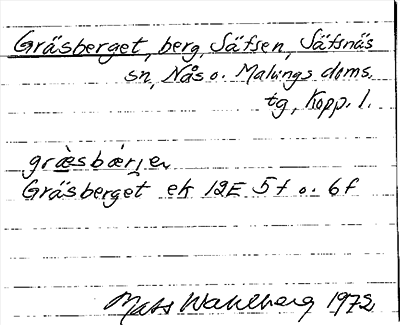 Gräsberget, berg, Säfsen, Säfsnäs
sn, Nås o. Malungs doms.
tg, Kopp. l.
græ̀sbær̩jen
Gräsberget ek 12E 5f o. 6f
Mats Wahlberg 1972